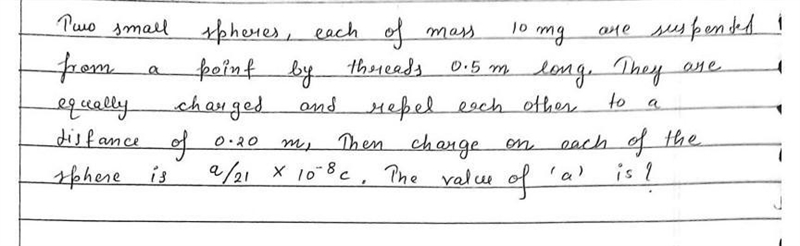 Two small spheres, each of mass 10 mg are suspended
from a point by threads 0.5 m long. They are
equally charged and repel each other to a
distance of 0.20 m, Then charge on each of the
sphere is a/21 × 10⁻⁸ c. The value of 'a' is ?